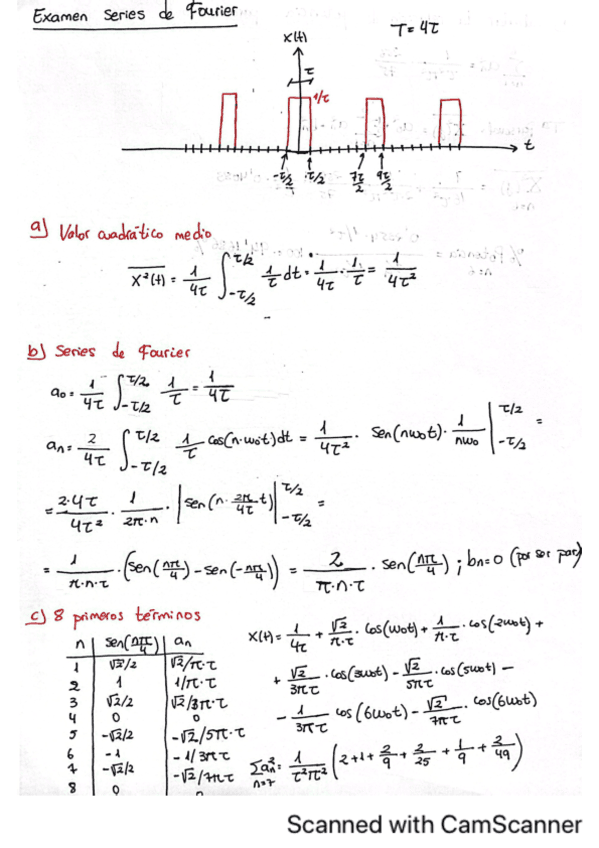 Examen Series de Fourier
T = 4τ
x(t)
τ
1/τ
t
-τ/2 τ/2 7τ/2 9τ/2
a) Valor cuadrático medio
X²(t) = 1/4τ ∫_{-τ/2}^{τ/2} 1/τ dt = 1/4τ · 1/τ = 1/4τ²
b) Series de Fourier
a₀ = 1/4τ ∫_{-τ/2}^{τ/2} 1/τ = 1/4τ
aₙ = 2/4τ ∫_{-τ/2}^{τ/2} 1/τ cos(n·ω₀t)dt = 1/4τ² · Sen(nω₀t) · 1/nω₀ |_{-τ/2}^{τ/2} =
= 2·4τ/4τ² · 1/2π·n · |sen(n · 2π/4τ t)|_{-τ/2}^{τ/2} =
= 1/π·n·τ · (sen(nπ/4) - sen(-nπ/4)) = 2/π·n·τ · sen(nπ/4) ; bn=0 (por ser par)
c) 8 primeros términos
n | sen(nπ/4) | an
1 | √2/2 | √2/π·τ
2 | 1 | 1/π·τ
3 | √2/2 | √2/3π·τ
4 | 0 | 0
5 | -√2/2 | -√2/5π·τ
6 | -1 | -1/3πτ
7 | -√2/2 | -√2/7πτ
8 | 0
x(t) = 1/4τ + √2/π·τ · cos(ω₀t) + 1/π·τ · cos(2ω₀t) +
+ √2/3πτ · cos(3ω₀t) - √2/5πτ · cos(5ω₀t) -
- 1/3πτ cos(6ω₀t) - √2/7πτ · cos(6ω₀t)
∑an² = 1/τ²π² (2+1+2/9+2/25+1/9+2/49)
n=7
Scanned with CamScanner